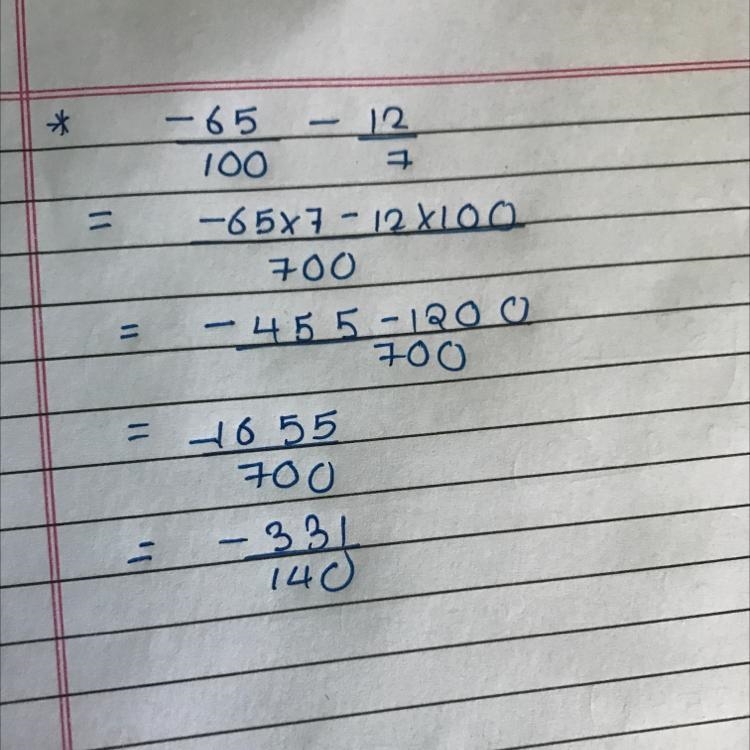 * -65 - 12
100 7
= -65x7 - 12x100
700
= -455 -1200
700
= -1655
700
= -331
140